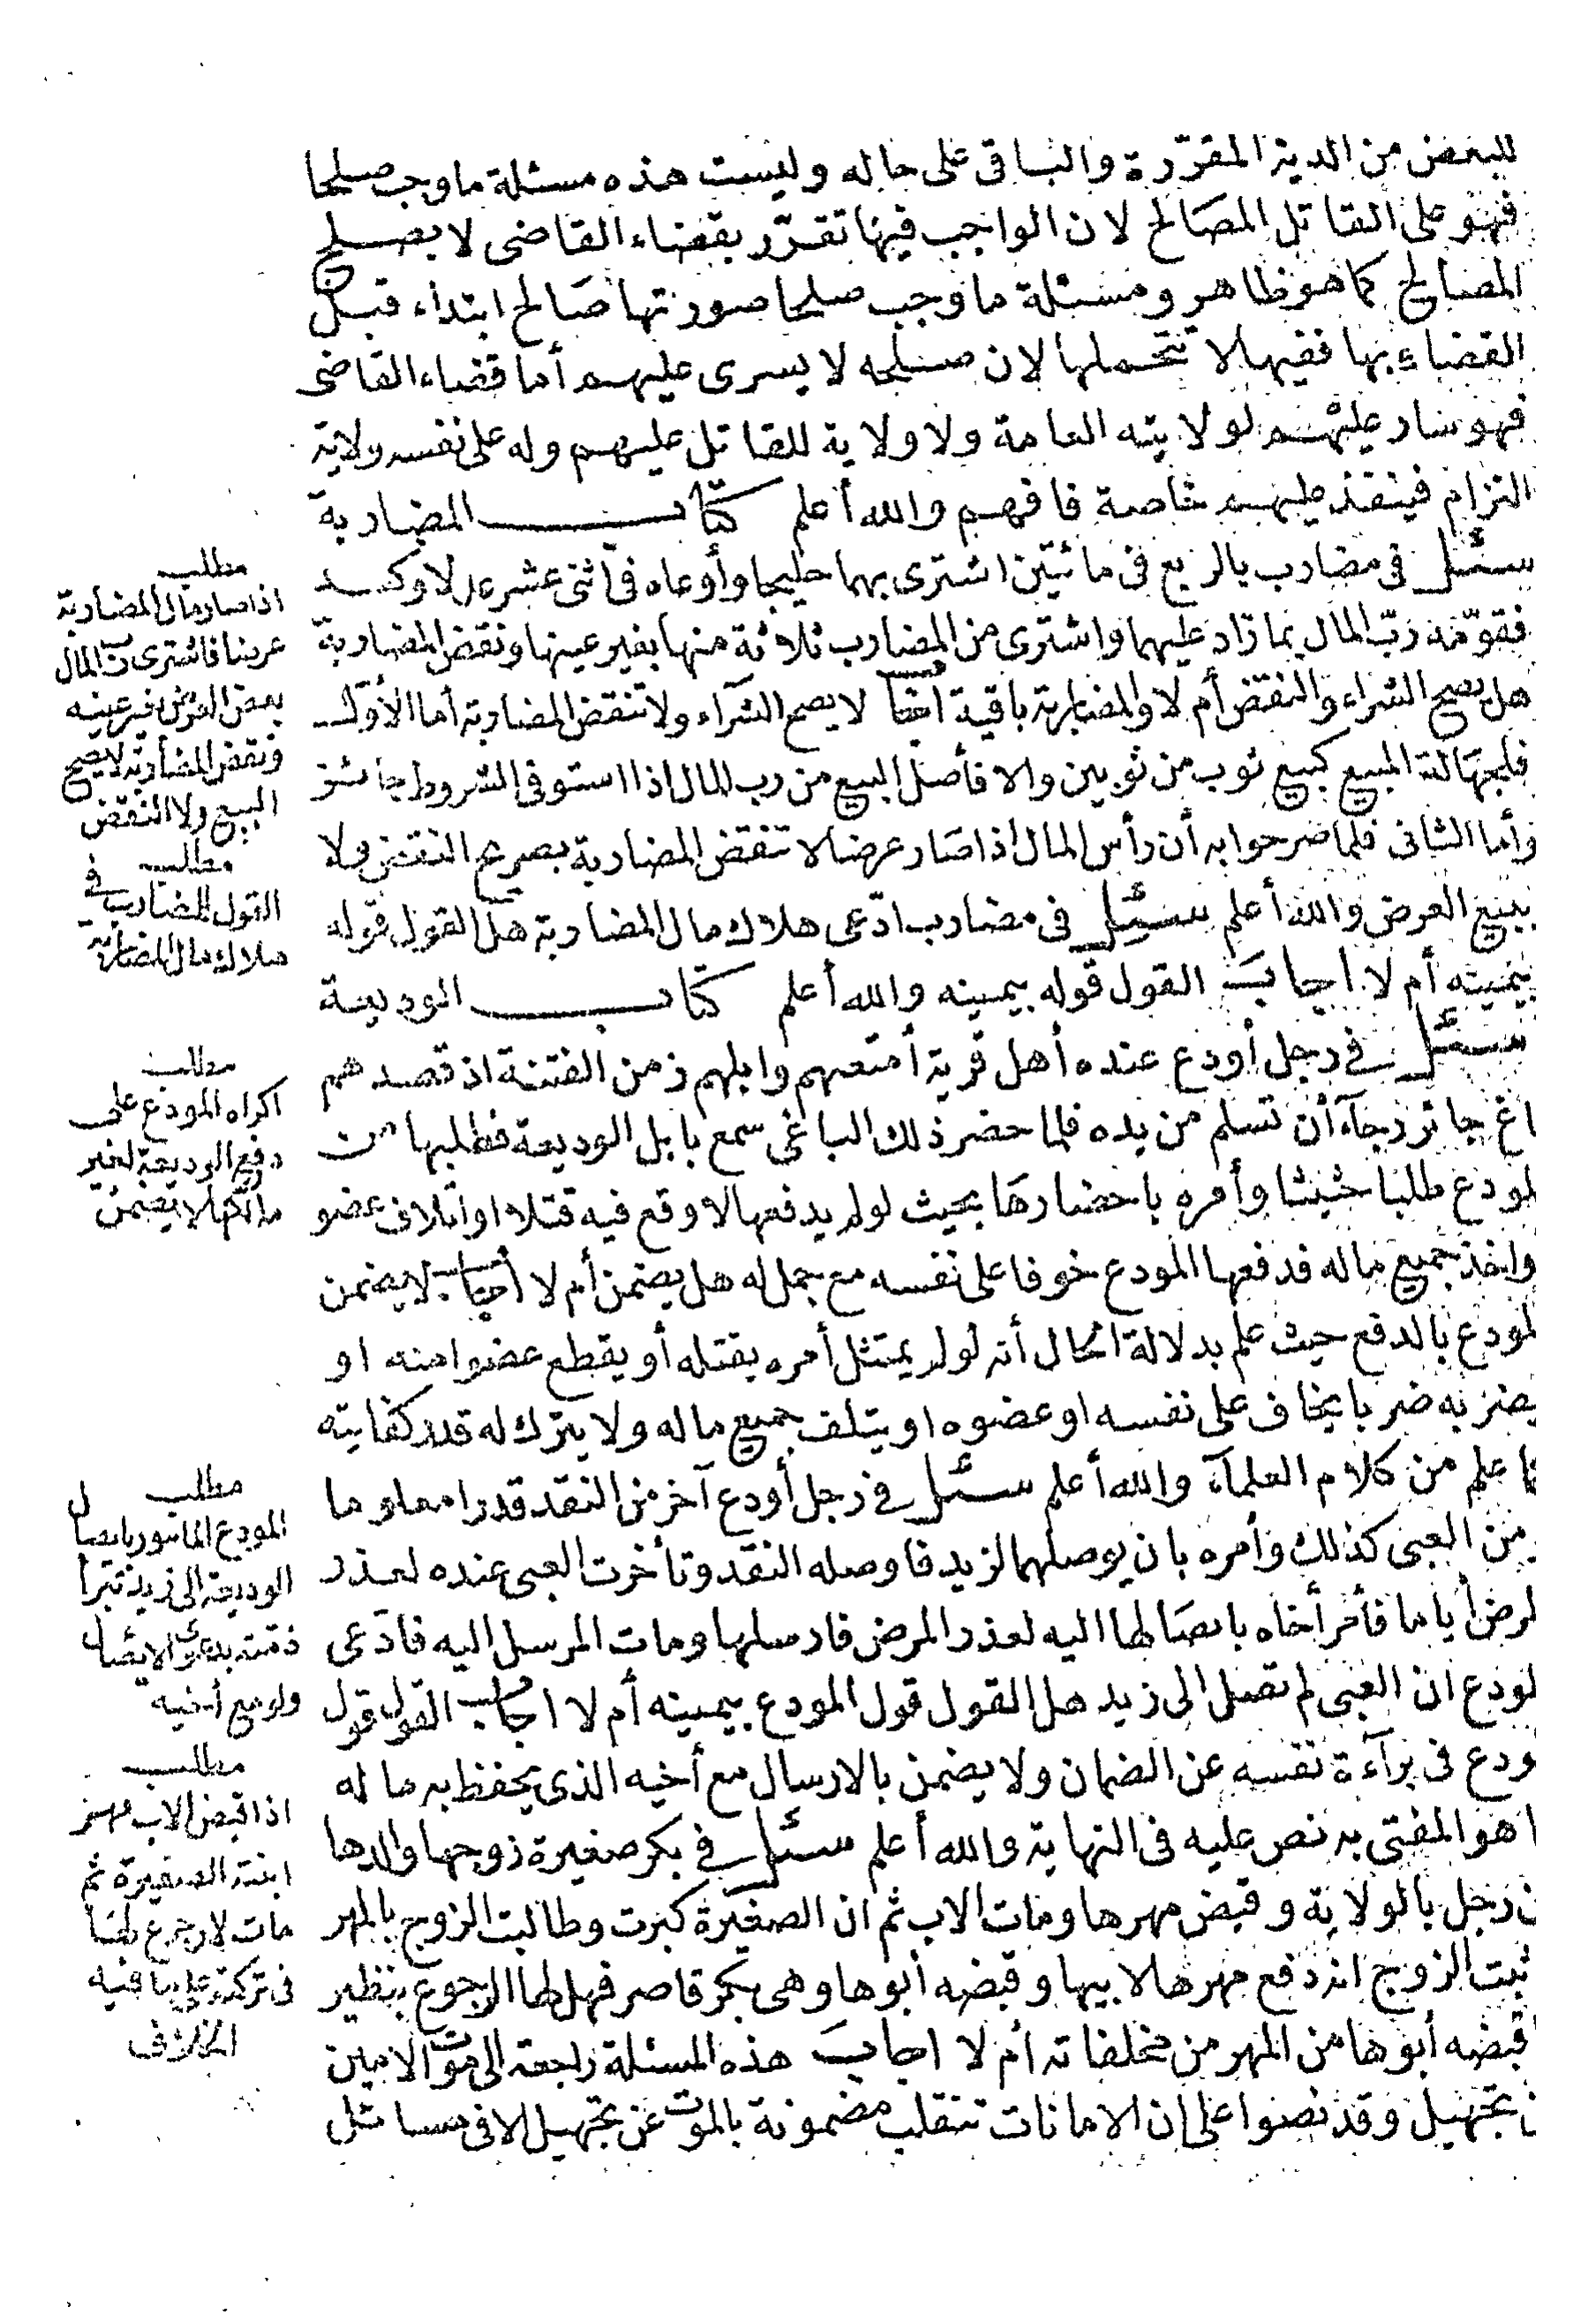 للبعض من الدية المقرّرة والباقى على حاله وليست هذه مسئلة ما وجب صلحا
فهو على القاتل المصالح لان الواجب فيها تقرّر بقضاء القاضى لا بصلح
المصالح كما هو ظاهر ومسئلة ما وجب صلحا صورتها صالح ابتداء قبل
القضاء بها ففيها لا تتحملها لان صلحه لا يسرى عليهم أما قضاء القاضى
فهو سار عليهم لولايته العامة ولا ولاية للقاتل عليهم وله على نفسه ولاية
التزام فينفذ عليه خاصة فافهم والله أعلم كتاب المضاربة
سئل فى مضارب بالربع فى مائتين اشترى بهما حليجا وأوعاه فى اثنى عشر عدلا وكسد
فقوّمه ربّ المال بما زاد عليهما واشترى من المضارب ثلاثة منها بغير عينها ونقض المضاربة
هل يصح الشراء والنقض أم لا والمضاربة باقية أجاب لا يصح الشراء ولا تنقض المضاربة أما الأول
فلجهالة المبيع كبيع ثوب من ثوبين والا فأصل البيع من رب المال اذا استوفى الشروط جائز
وأما الثانى فلما صرحوا به أن رأس المال اذا صار عرضا لا تنقض المضاربة بصريح النقض ولا
ببيع العرض والله أعلم سئل فى مضارب ادّعى هلاك مال المضاربة هل القول قوله
بيمينه أم لا اجاب القول قوله بيمينه والله أعلم كتاب الوديعة
سئل فى رجل أودع عنده أهل قرية أمتعهم وابلهم زمن الفتنة اذ قصدهم
اغ جائر رجآء أن تسلم من يده فلما حضر ذلك الباغى سمع بابل الوديعة فطلبها من
لمودع طلبا حثيثا وأمره باحضارها بحيث لو لم يدفعها لاوقع فيه قتلا او اتلاف عضو
واخذ جميع ماله فدفعها المودع خوفا على نفسه مع جمل له هل يضمن أم لا أجاب لا يضمن
لمودع بالدفع حيث علم بدلالة الحال أنه لو لم يمتثل أمره يقتله أو يقطع عضوا منه او
يضربه ضربا يخاف على نفسه او عضوه او يتلف جميع ماله ولا يترك له قدر كفايته
ما علم من كلام العلمآء والله أعلم سئل فى رجل أودع آخر من النقد قدرا معلوما
من العبى كذلك وأمره بان يوصلهما لزيد فاوصله النقد وتأخرت العبى عنده لعذر
لرض أياما فأمر أخاه بايصالها اليه لعذر المرض فارسلها ومات المرسل اليه فادّعى
لودع ان العبى لم تصل الى زيد هل القول قول المودع بيمينه أم لا اجاب القول قول
ودع فى برآءة نفسه عن الضمان ولا يضمن بالارسال مع أخيه الذى يحفظ به ماله
ا هو المفتى به نص عليه فى النهاية والله أعلم سئل فى بكر صغيرة زوجها والدها
ن رجل بالولاية وقبض مهرها ومات الاب ثم ان الصغيرة كبرت وطالبت الزوج بالمهر
ثبت الزوج انه دفع مهرها لابيها وقبضه أبوها وهى بكر قاصر فهل لها الرجوع بنظير
قبضه أبوها من المهر من مخلفاته أم لا اجاب هذه المسئلة راجعة الى موت الامين
ن تجهيل وقد نصوا على ان الامانات تنقلب مضمونة بالموت عن تجهيل الا فى مسائل
مطلب
اذا صار مال المضاربة
عرضا فاشترى رب المال
بعض العرض بغير عينه
ونقض المضاربة لا يصح
البيع ولا النقض
مطلب
القول للمضارب فى
هلاك مال المضاربة
مطلب
اكراه المودع على
دفع الوديعة لغير
مالكها لا يضمن
مطلب
المودع المامور بايصال
الوديعة الى زيد تبرأ
ذمته بدعوى الايصال
ولو مع أخيه
مطلب
اذا قبض الاب مهر
ابنته الصغيرة ثم
مات لا رجوع لها
فى تركته على ما فيه
الخلاف